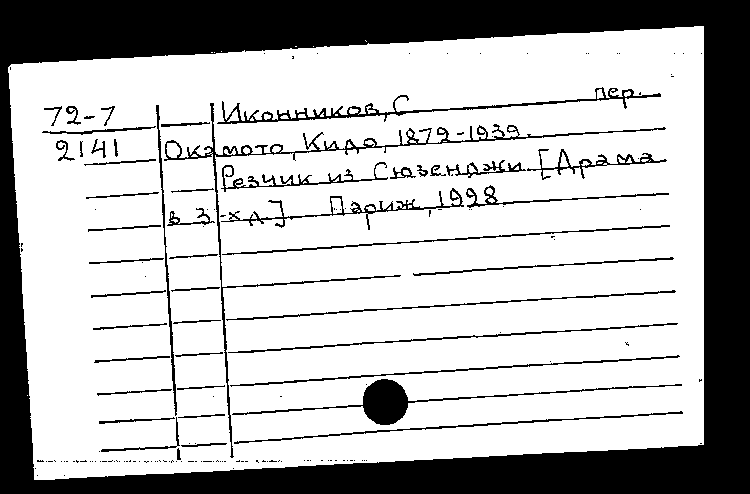 72-7 Иконников, С пер.
2141 Окамото, Кидо, 1872-1939.
Резчик из Сюзенджи [Драма
в 3-х д.]. Париж, 1928.